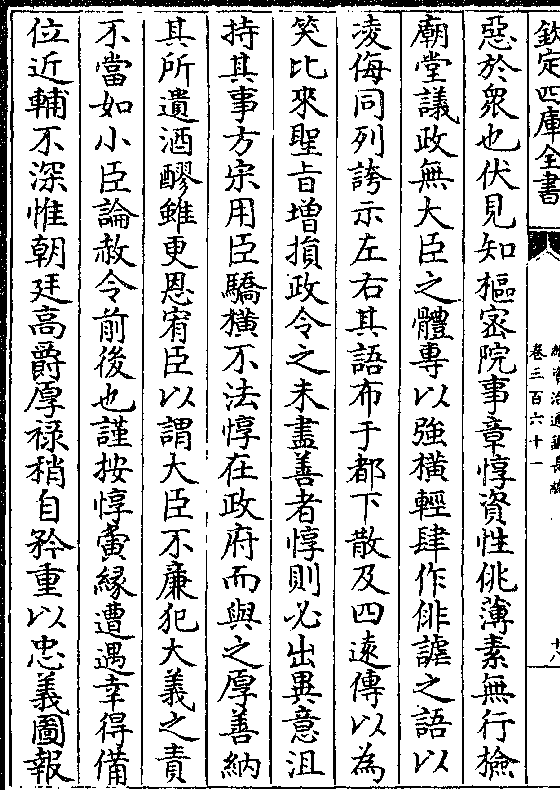 欽定四庫全書
續資治通鑑長編
卷三百六十一
十八
惡於衆也伏見知樞宻院事章惇資性佻薄素無行檢
廟堂議政無大臣之體專以強橫輕肆作俳謔之語以
凌侮同列誇示左右其語布于都下散及四逺傳以為
笑比來聖旨増損政令之未盡善者惇則必出異意沮
持其事方宋用臣驕橫不法惇在政府而與之厚善納
其所遺酒醪雖更恩宥臣以謂大臣不亷犯大義之責
不當如小臣論赦令前後也謹按惇夤縁遭遇幸得備
位近輔不深惟朝廷高爵厚祿稍自矜重以忠義圖報